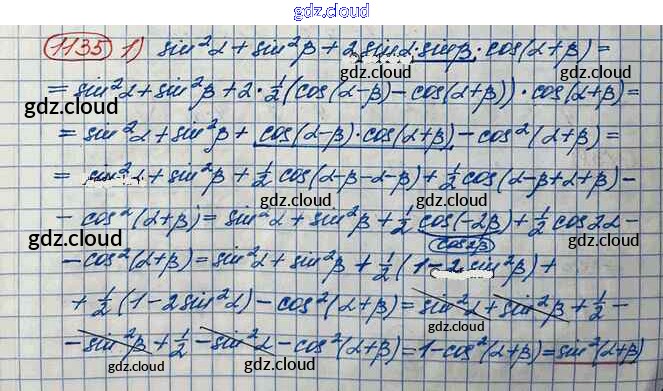 gdz.cloud
1135 1) sin²α + sin²β + 2 sinα·sinβ·cos(α+β) =
= sin²α + sin²β + 2·½(cos(α-β) - cos(α+β))·cos(α+β) =
gdz.cloud gdz.cloud gdz.cloud
= sin²α + sin²β + cos(α-β)·cos(α+β) - cos²(α+β) =
= sin²α + sin²β + ½ cos(α-β-α-β) + ½ cos(α-β+α+β) -
gdz.cloud gdz.cloud
- cos²(α+β) = sin²α + sin²β + ½ cos(-2β) + ½ cos2α -
gdz.cloud gdz.cloud
cos2β
- cos²(α+β) = sin²α + sin²β + ½(1-2sin²β) +
+ ½(1-2sin²α) - cos²(α+β) = sin²α + sin²β + ½ -
gdz.cloud gdz.cloud
- sin²β + ½ - sin²α - cos²(α+β) = 1-cos²(α+β) = sin²(α+β)
gdz.cloud gdz.cloud